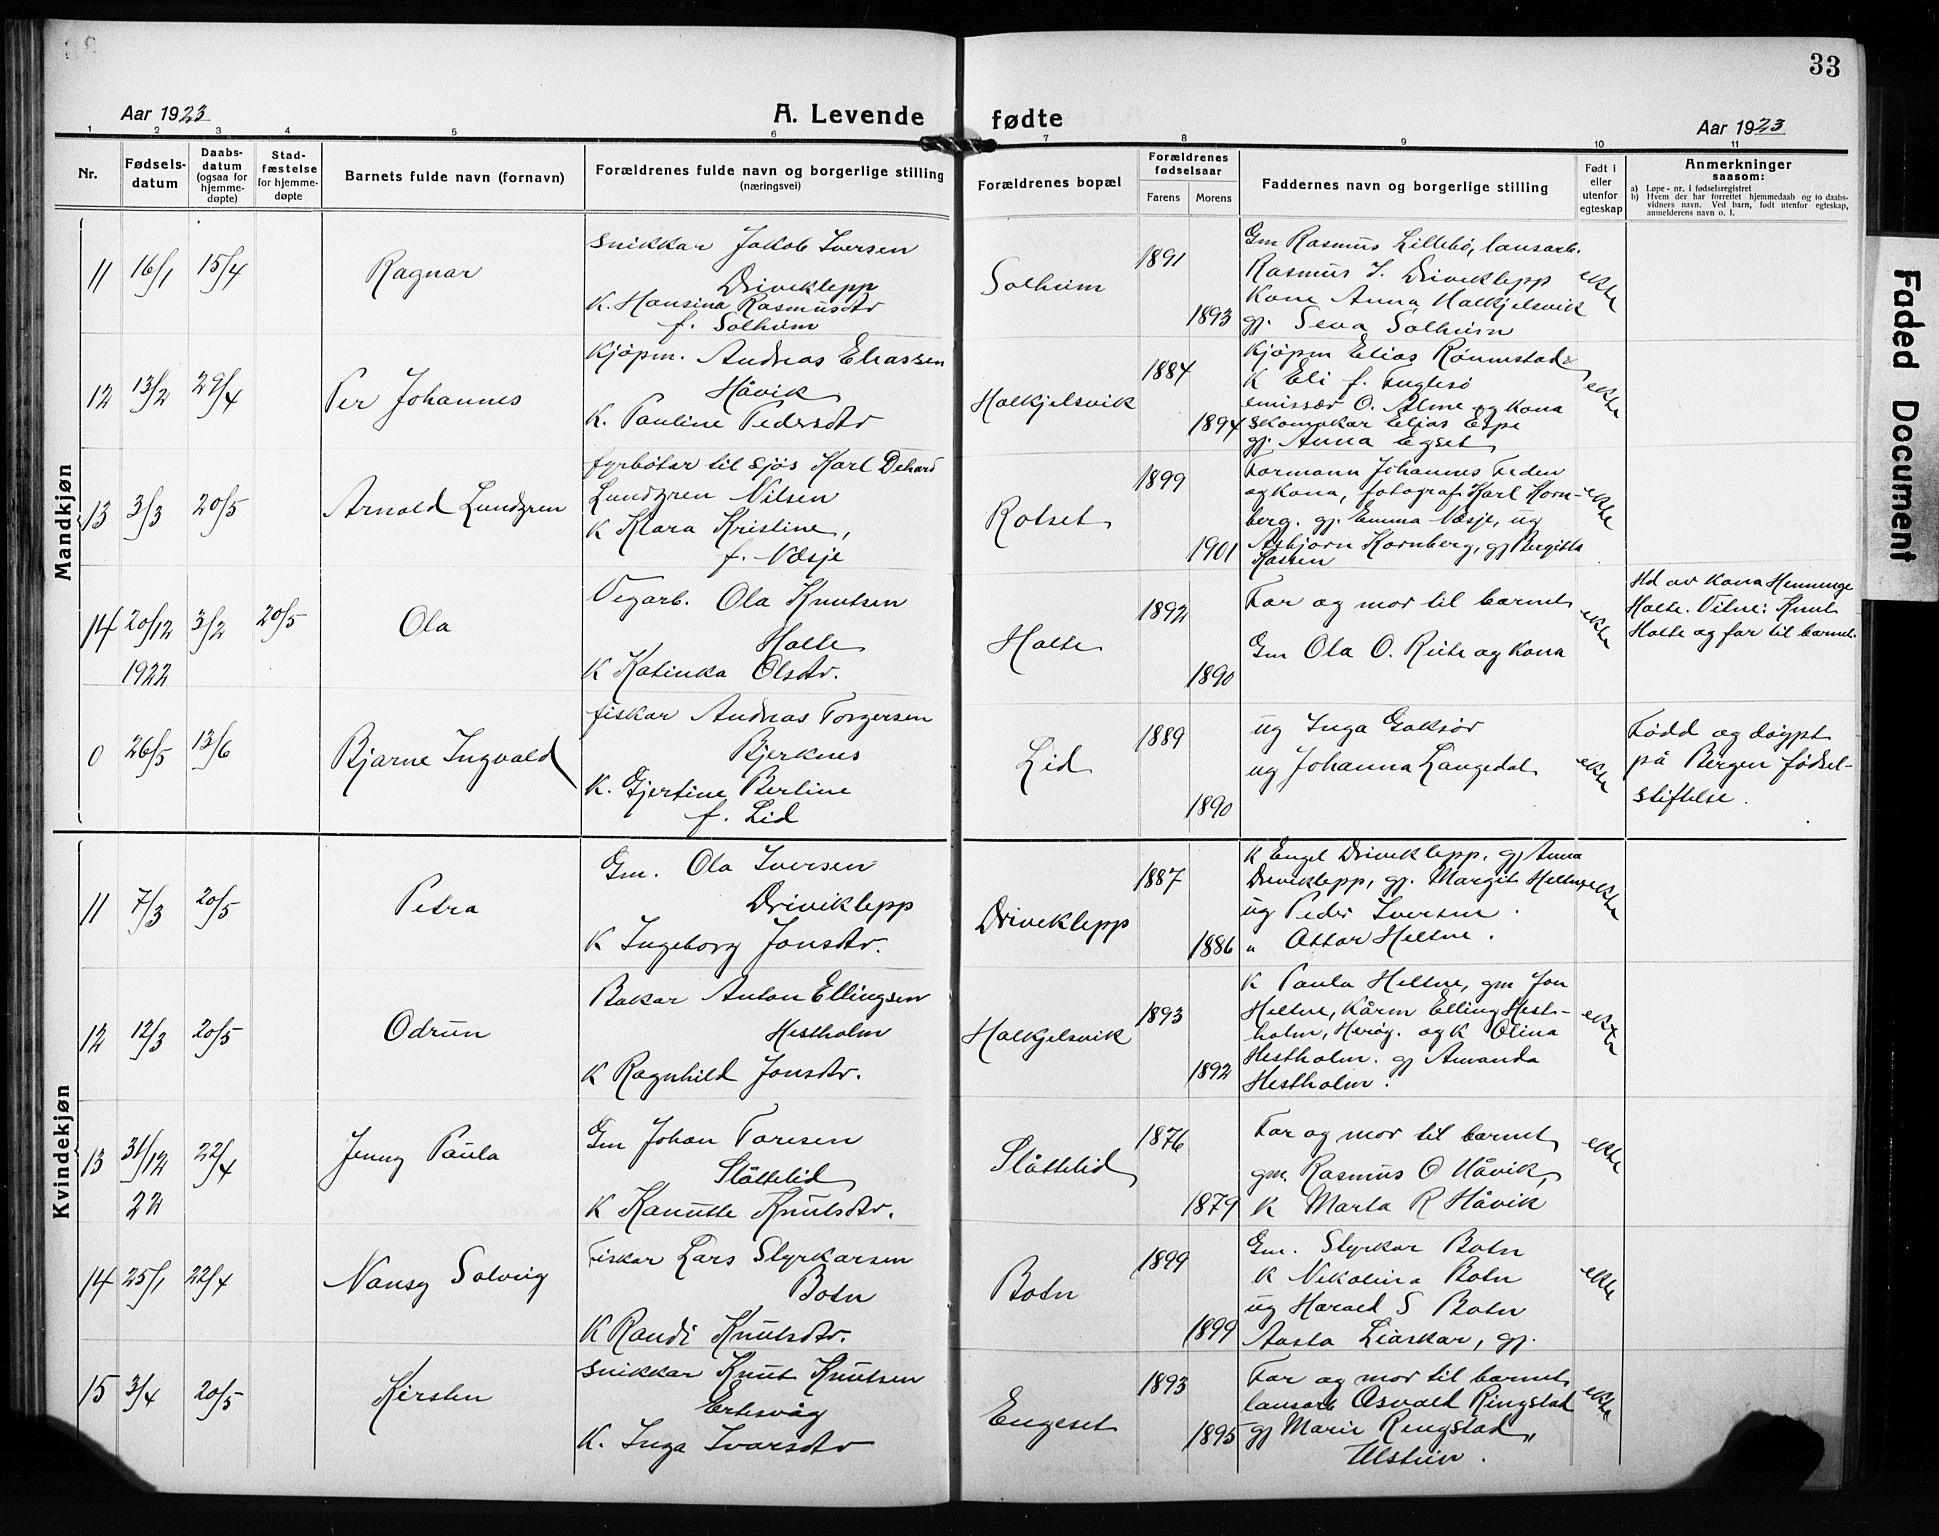 33
Aar 1923
A. Levende fødte
Aar 1923
1 2 3 4 5 6 7 8 9 10 11
Nr.
Fødsels-
datum
Daabs-
datum
(ogsaa for
hjemme-
døpte)
Stad-
fæstelse
for hjemme-
døpte
Barnets fulde navn (fornavn)
Forældrenes fulde navn og borgerlige stilling
(næringsvei)
Forældrenes bopæl
Forældrenes
fødselsaar
Farens
Morens
Faddernes navn og borgerlige stilling
Født i
eller
utenfor
egteskap
Anmerkninger
saasom:
a) Løpe-nr. i fødselsregistret
b) Hvem der har forrettet hjemmedaab og to daabs-
vidners navn. Ved barn, født utenfor egteskap,
anmelderens navn o. l.
Faded Document
Mandkjøn
11 16/1 15/4
Ragnar
snikkar Jakob Iversen
Driveklepp
K. Hansina Rasmusdtr
f. Solheim
Solheim
1891
1893
Gm Rasmus Lillebø, lausarb.
Rasmus I. Driveklepp
Kone Anna Halkjelsvik
gj. Seva Solheim
ekte
12 13/2 29/4
Per Johannes
Kjøpm. Andreas Eliassen
Håvik
K. Pauline Pedersdtr
Halkjelsvik
1884
1894
Kjøpm Elias Rønnestad
K Eli f. Fuglesø
emissær O. Alme og kona
skomakar Elias Espe
gj. Anna Egset
ekte
13 3/3 20/5
Arnold Lundgren
fyrbøtar til sjøs Karl
Lundgren Nilsen
K Klara Kristine,
f. Næsje
Rotset
1899
1901
Formann Johannes
og kona, fotograf Karl Korn-
berg. gj. Emma Næsje, ug
Asbjørn Kornberg, gj Bergitta
ekte
14 20/12 3/2 20/5
1922
Ola
Vegarb. Ola Knutsen
Holte
K Katinka Olsdtr.
Holte
1892
1890
Far og mor til barnet
Gm Ola O. Reite og kona
ekte
Hd av kona Henninge
Holte. Vitne: Knut
Holte og far til barnet.
0 26/5 13/6
Bjarne Ingvald
fiskar Andreas Torgersen
Bjerknes
K. Gjertine Berline
f. Lid
Lid
1889
1890
ug Inga Goksør
ug Johanna Langedal
ekte
Fødd og døypt
på Bergen fødsel-
stiftelse.
Kvindekjøn
11 7/3 20/5
Petra
Gm. Ola Iversen
Driveklepp
K Ingeborg Jonsdtr.
Driveklepp
1887
1886
K Engel Driveklepp, gj Anna
Driveklepp, gj. Margit Heltne
ug Peder Iversen.
" Ottar Heltne.
ekte
12 12/3 20/5
Odrun
Bakar Anton Ellingsen
Hestholm
K Ragnhild Jonsdtr.
Halkjelsvik
1893
1892
K Paula Heltne, gm Jon
Heltne, Kårm Elling Hest-
holm, Herøy. og K Olina
Hestholm. gj Amanda
Hestholm.
ekte
13 31/12 22/4
22
Jenny Paula
Gm Johan Toresen
Slåttelid
K Kanutte Knutsdtr.
Slåttelid
1876
1879
Far og mor til barnet,
gm, Rasmus O Håvik,
K Marta R Håvik
ekte
14 25/1 22/4
Nansy Solveig
Fiskar Lars Styrkarsen
Botn
K Randi Knutsdtr.
Botn
1899
1899
Gm. Styrkar Botn
K Nikolina Botn
ug Harald S Botn
Aasta Liaskar, gj.
ekte
15 3/4 20/5
Kirsten
snikkar Knut Knutsen
Ertesvåg
K. Inga Ivarsdtr
Engeset
1893
1895
Far og mor til barnet,
lausarb Osvald Ringstad
gj Marie Ringstad,
Ulstein.
ekte